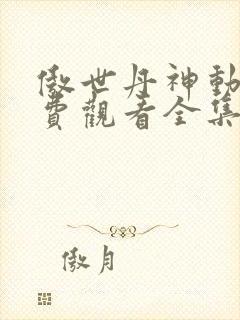 傲世丹神動
費觀看全集
傲月